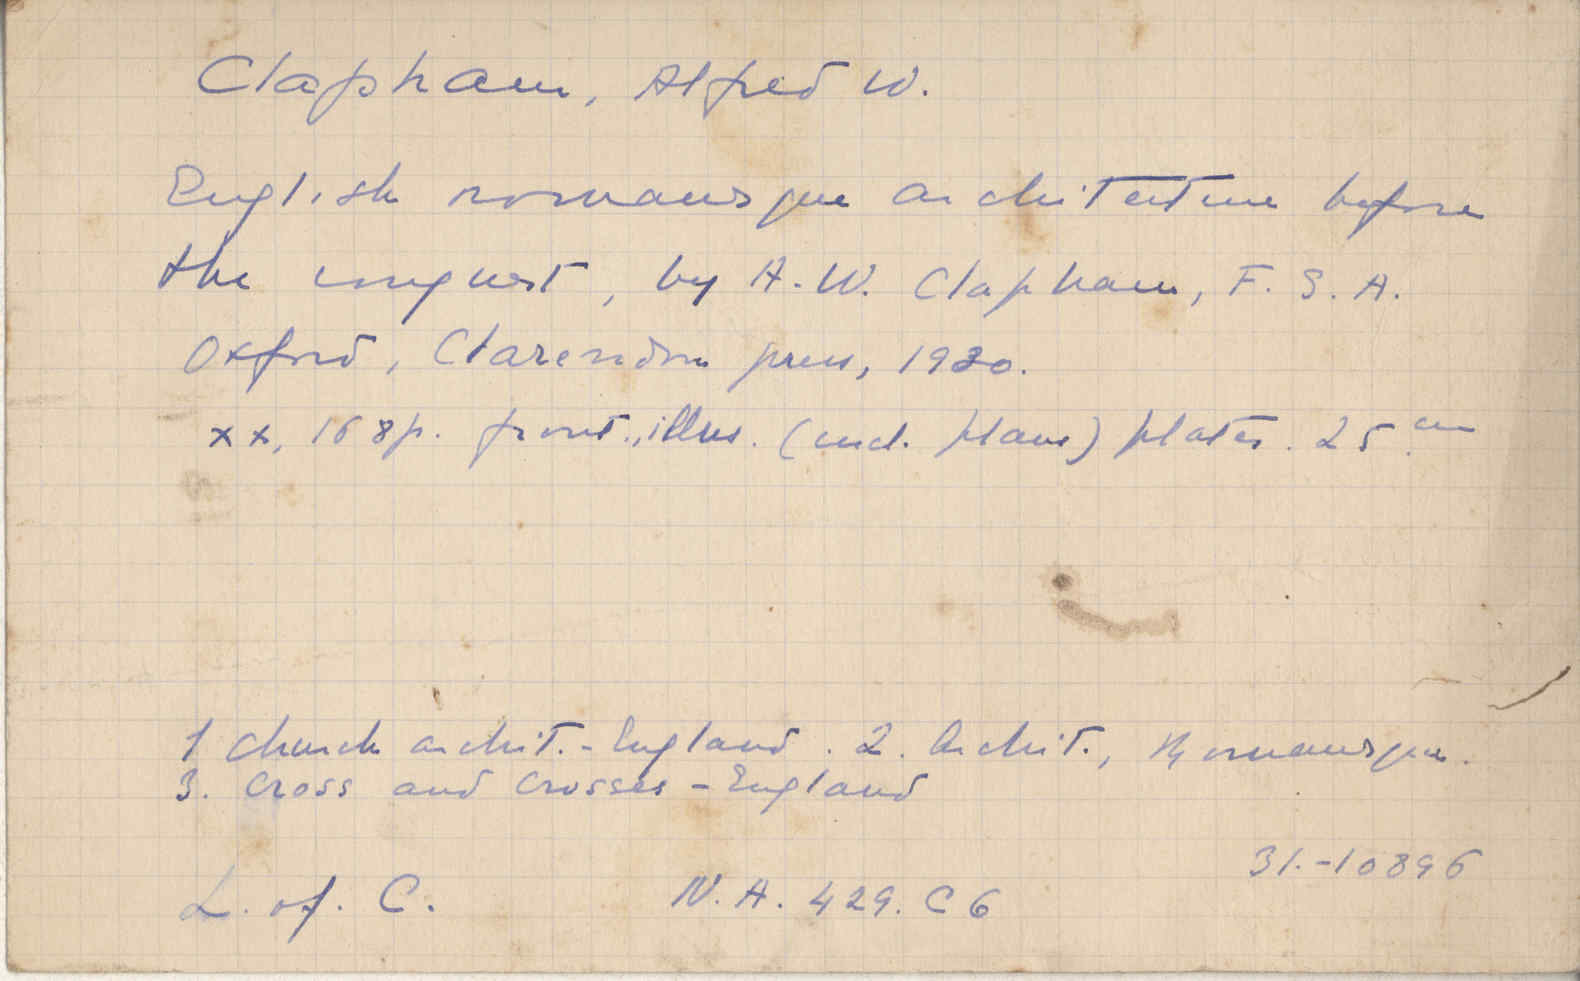 Clapham, Alfred W.
English romanesque architecture before
the conquest, by A. W. Clapham, F. S. A.
Oxford, Clarendon press, 1930.
xx, 168p. front., illus. (incl. plans) plates. 25 cm
1 Church archit. - England. 2. Archit., Romanesque.
3. Cross and crosses - England
31.-10896
L. of. C. N. A. 429. C6